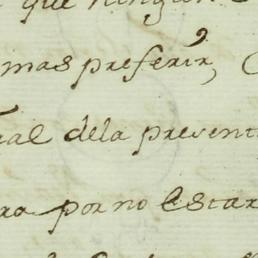 que ningun
mas preferir,
al dela present
ra por no estar